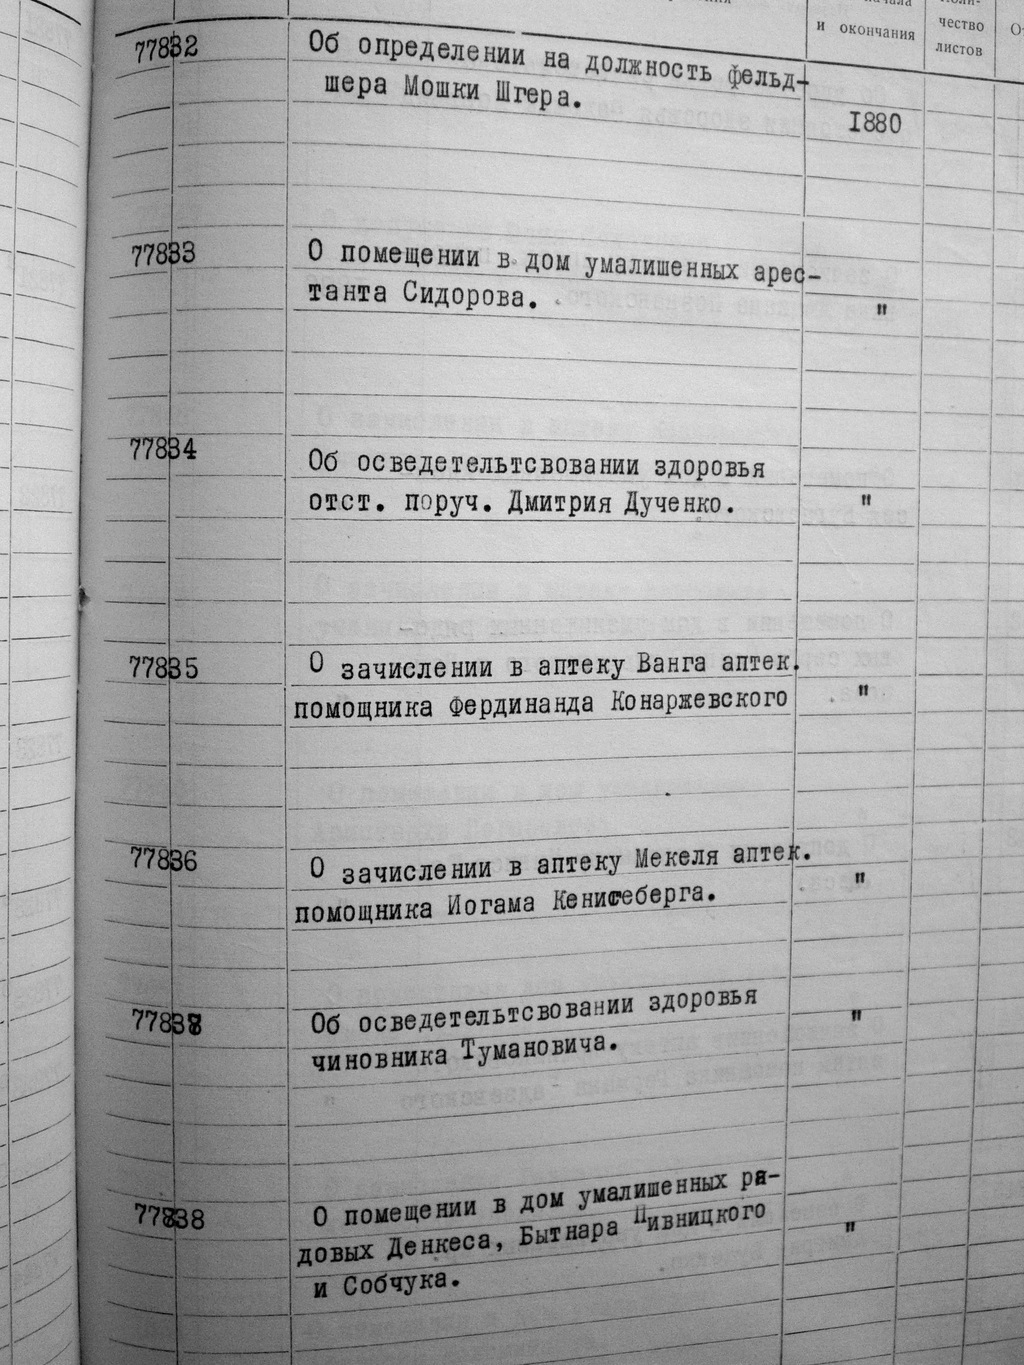 начала
Коли-
и окончания
чество
листов
77832
Об определении на должность фельд-
шера Мошки Штера.
1880
77833
О помещении в дом умалишенных арес-
танта Сидорова.
"
77834
Об осведетельтсвовании здоровья
отст. поруч. Дмитрия Дученко.
"
77835
О зачислении в аптеку Ванга аптек.
помощника Фердинанда Конаржевского
"
77836
О зачислении в аптеку Мекеля аптек.
помощника Иогама Кенигеберга.
"
77837
Об осведетельтсвовании здоровья
чиновника Тумановича.
"
77838
О помещении в дом умалишенных ря-
довых Денкеса, Бытнара Пивницкого
и Собчука.
"